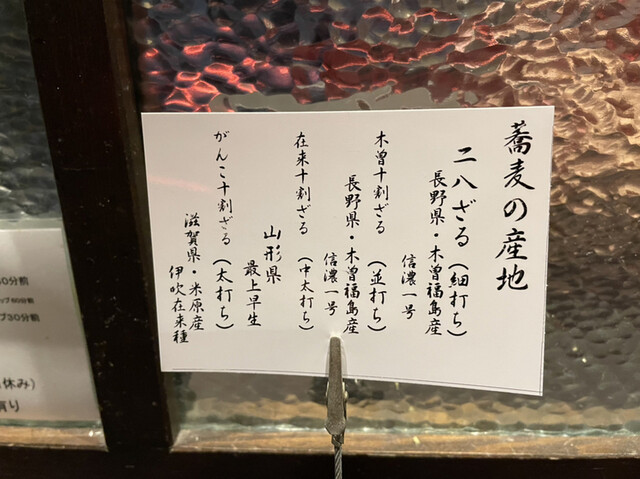 蕎麦の産地
二八ざる（細打ち）
長野県・木曽福島産
信濃一号
木曽十割ざる（並打ち）
長野県・木曽福島産
信濃一号
在来十割ざる（中太打ち）
山形県
最上早生
がんこ十割ざる（太打ち）
滋賀県・米原産
伊吹在来種
0分前
ップ60分前
プ30分前
休み）
有り